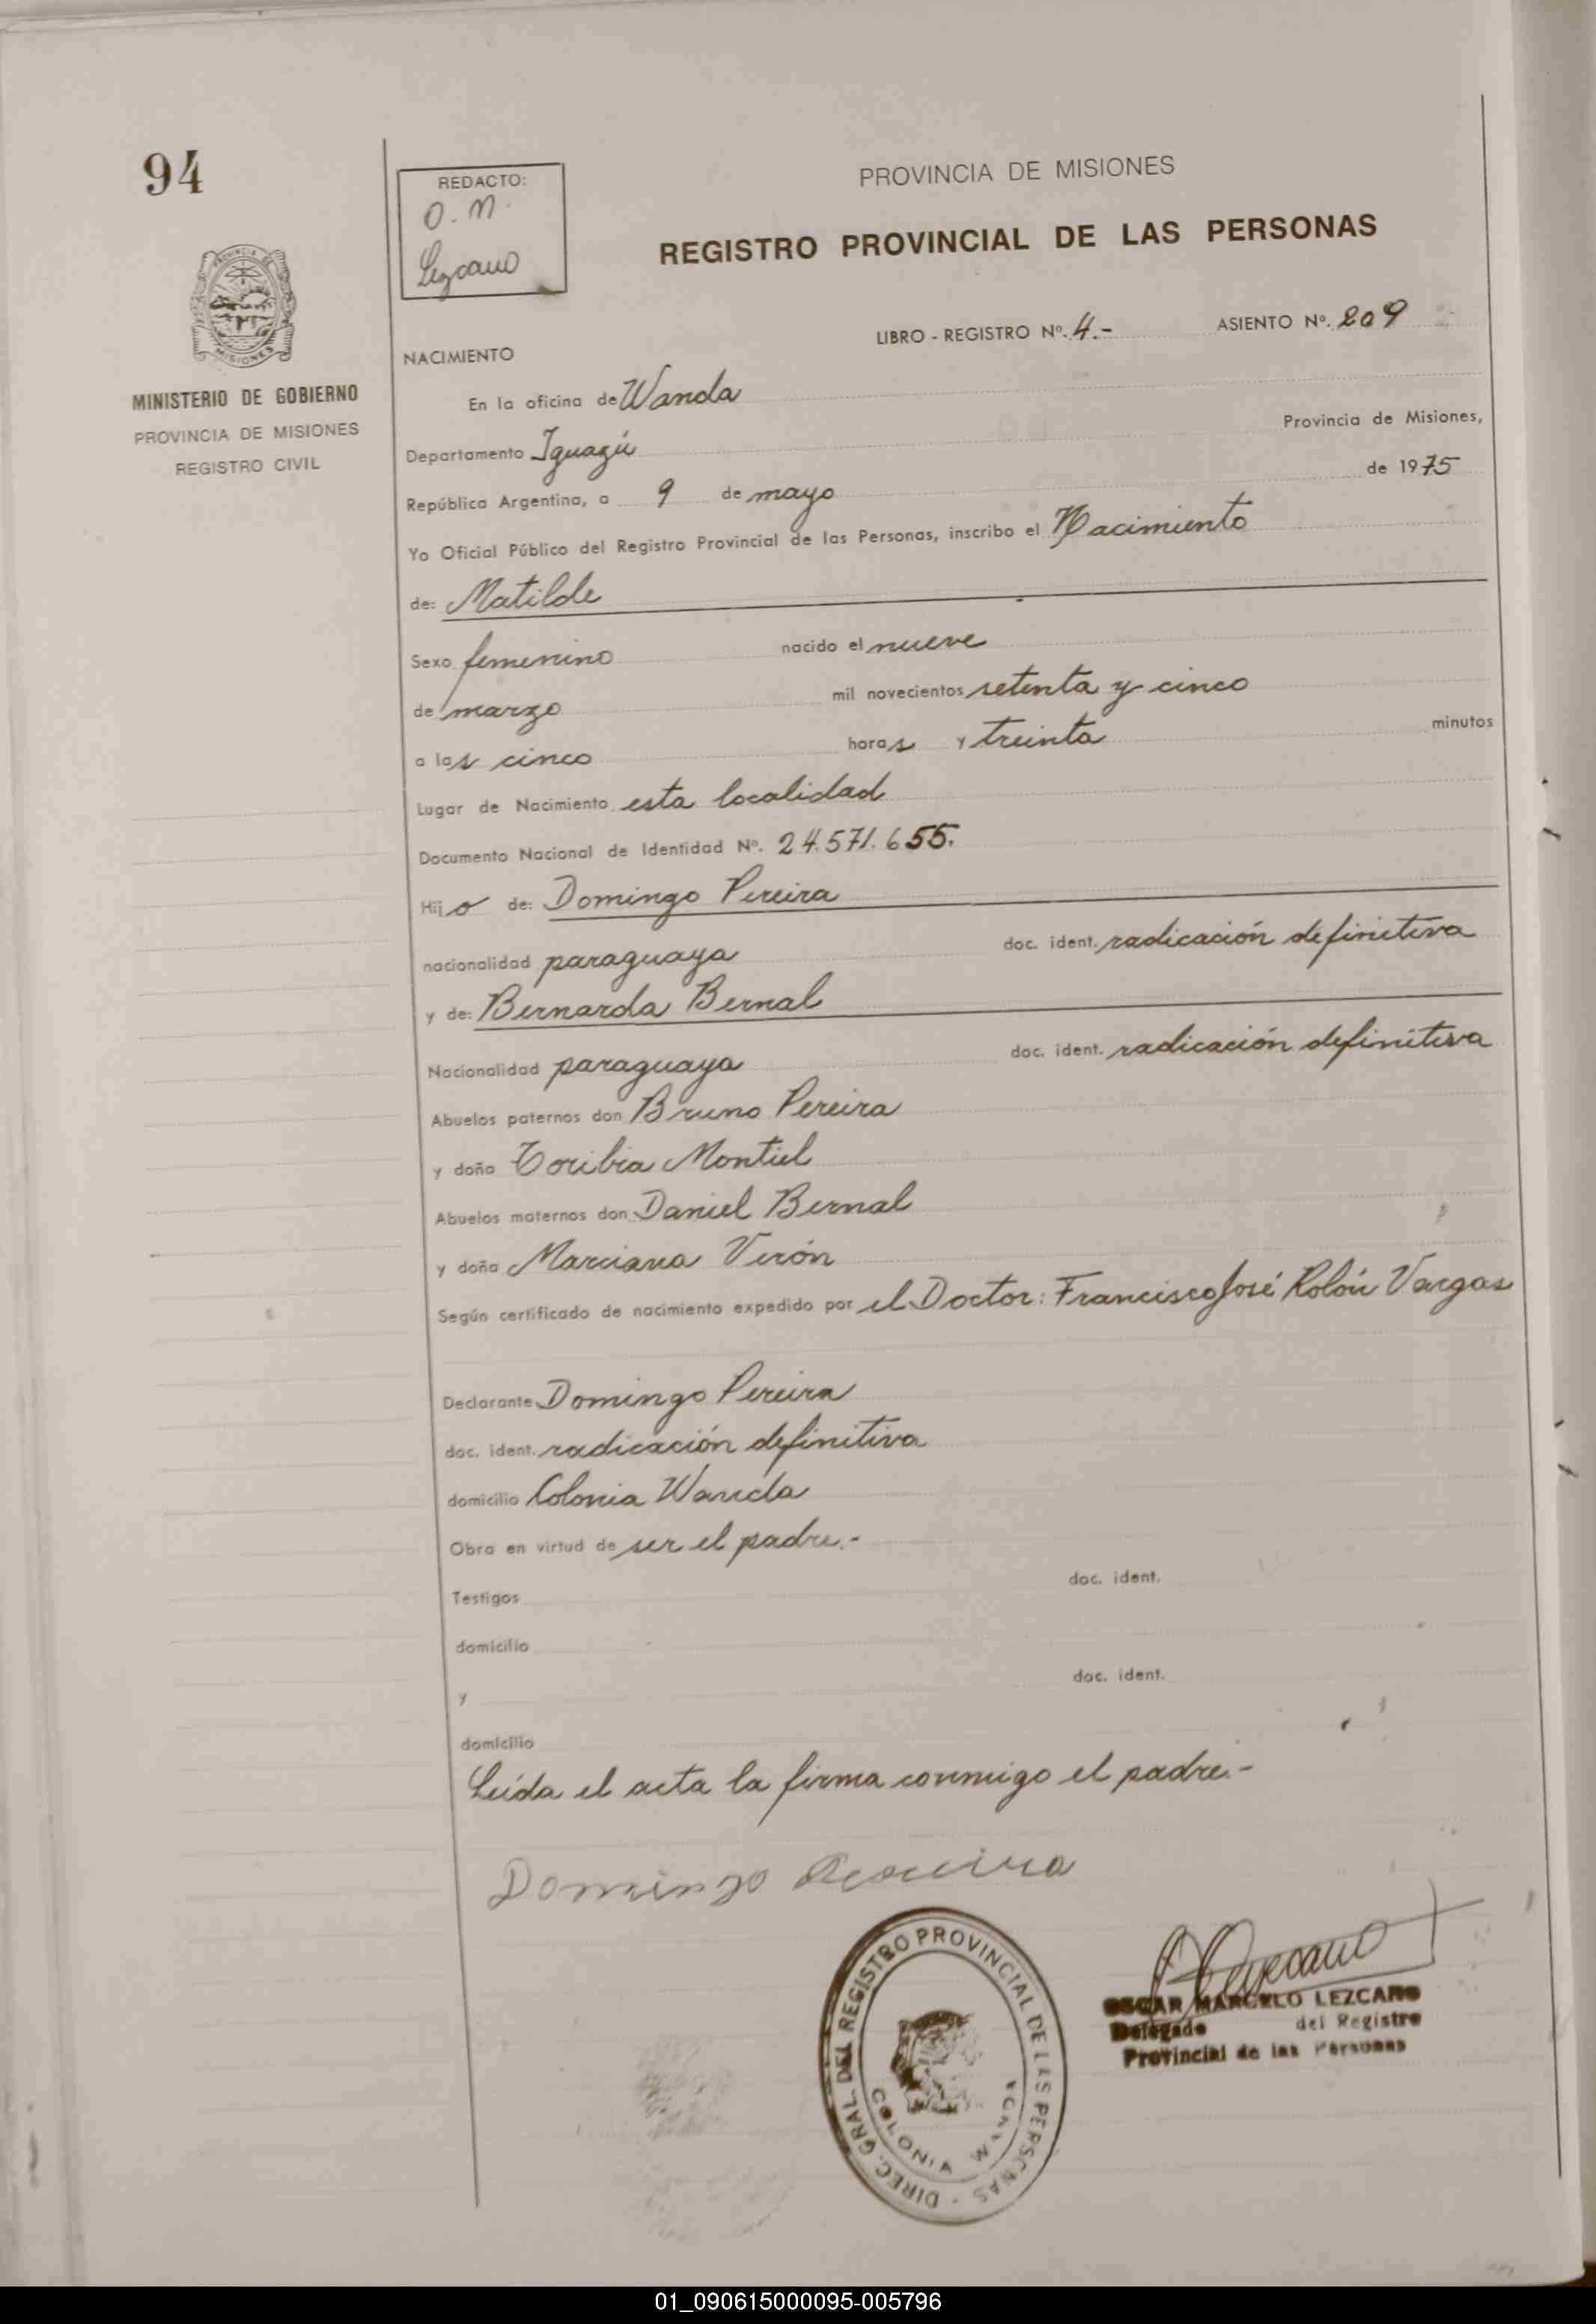 94
REDACTO:
O. M.
Lezcano
PROVINCIA DE MISIONES
REGISTRO PROVINCIAL DE LAS PERSONAS
PROVINCIA DE
MISIONES
MINISTERIO DE GOBIERNO
PROVINCIA DE MISIONES
REGISTRO CIVIL
LIBRO - REGISTRO Nº. 4.- ASIENTO Nº. 209
NACIMIENTO
En la oficina de Wanda
Provincia de Misiones,
Departamento Iguazú
República Argentina, a 9 de mayo de 1975
Yo Oficial Público del Registro Provincial de las Personas, inscribo el Nacimiento
de: Matilde
Sexo femenino nacido el nueve
de marzo mil novecientos setenta y cinco
a las cinco horas y treinta minutos
Lugar de Nacimiento esta localidad
Documento Nacional de Identidad Nº. 24.571.655.
Hijo de: Domingo Pereira
nacionalidad paraguaya doc. ident. radicación definitiva
y de: Bernarda Bernal
Nacionalidad paraguaya doc. ident. radicación definitiva
Abuelos paternos don Bruno Pereira
y doña Toribia Montiel
Abuelos maternos don Daniel Bernal
y doña Marciana Verón
Según certificado de nacimiento expedido por el Doctor: Francisco José Rolón Vargas
Declarante Domingo Pereira
doc. ident. radicación definitiva
domicilio Colonia Wanda
Obra en virtud de ser el padre.-
Testigos doc. ident.
domicilio
y doc. ident.
domicilio
Leída el acta la firma conmigo el padre.-
Domingo Pereira
DIREC. GRAL. DEL REGISTRO PROVINCIAL DE LAS PERSONAS -
COLONIA WANDA
Lezcano
OSCAR MARCELO LEZCANO
Delegado del Registro
Provincial de las Personas
01_090615000095-005796